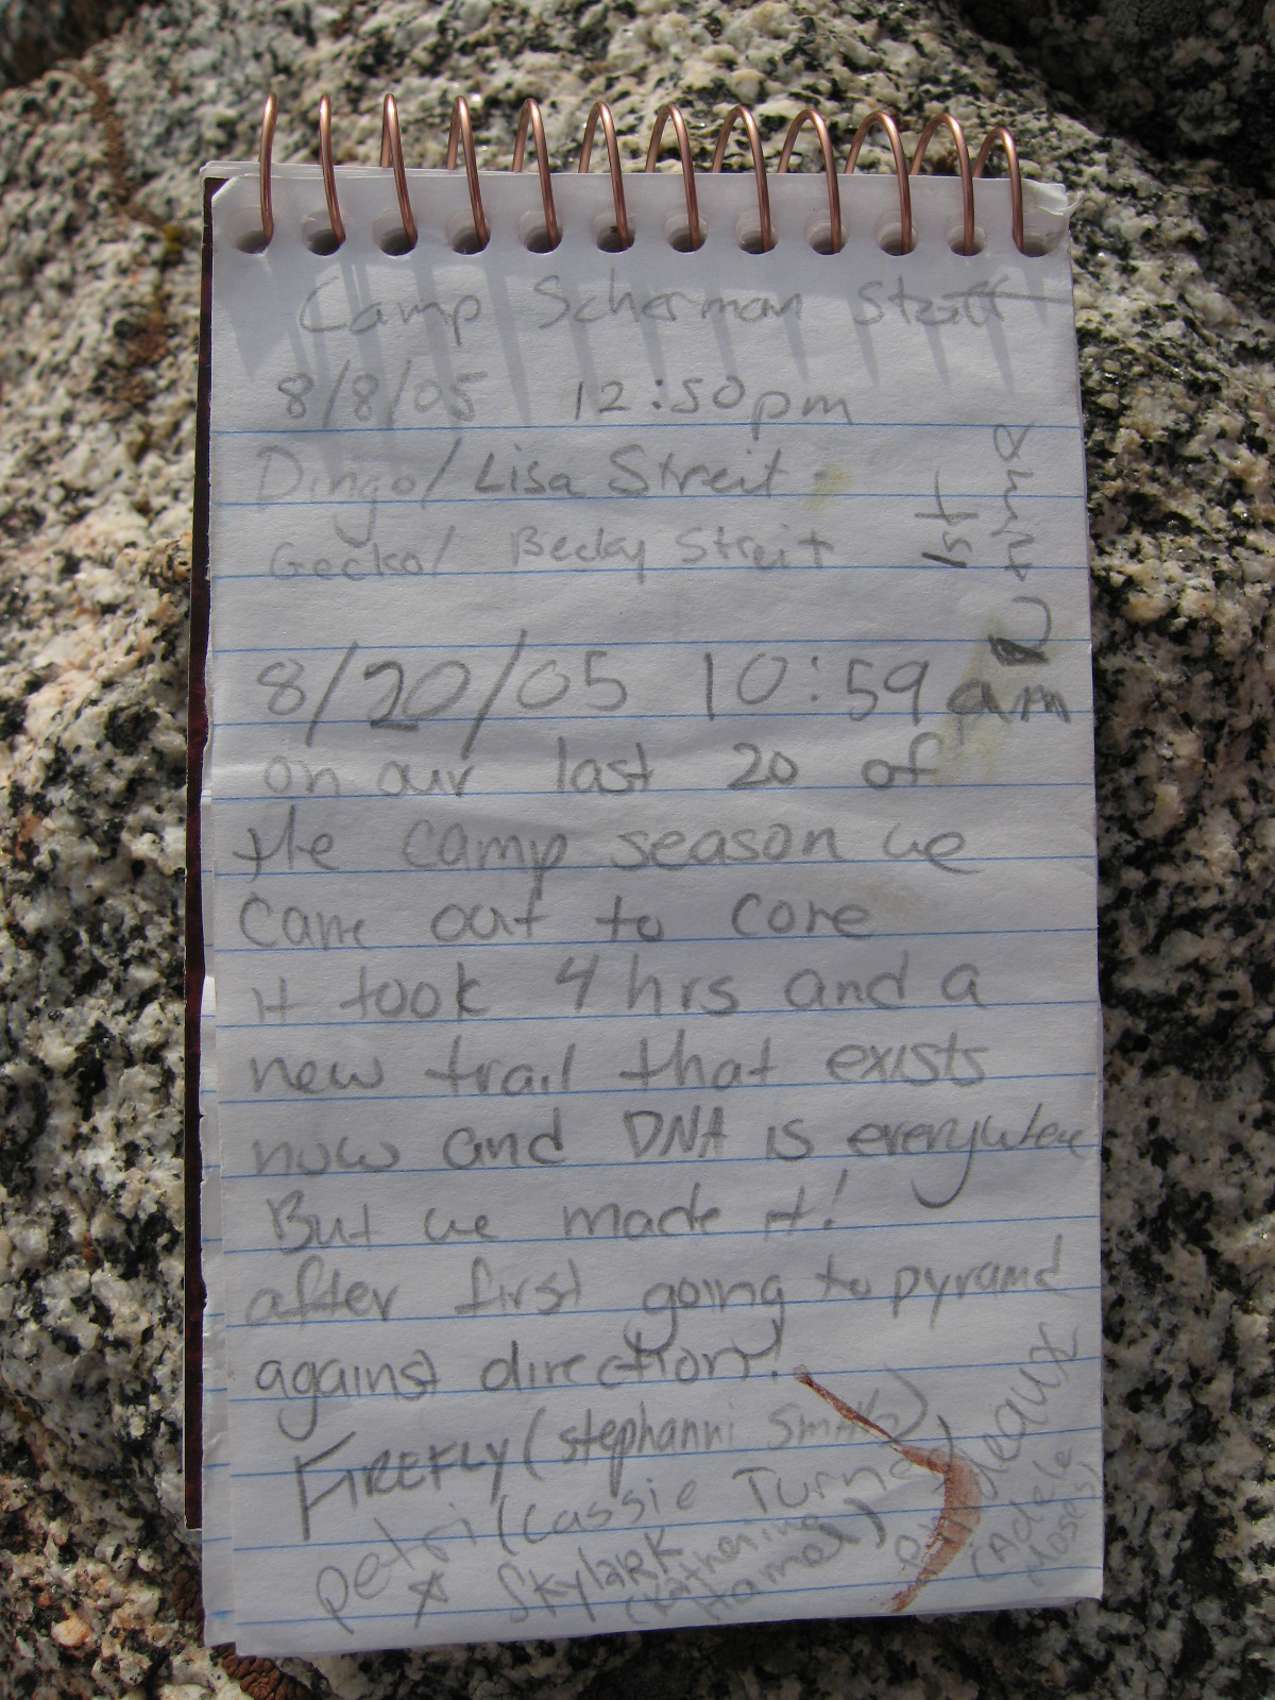 Camp Scherman Staff
8/8/05 12:50pm
Dingo/Lisa Streit
Gecko/ Becky Streit
1st
time
8/20/05 10:59 am
on our last 20 of
the camp season we
came out to core
it took 4 hrs and a
new trail that exists
now and DNA is everywhere
But we made it!
after first going to pyramd
against direction!
FIREFLY (stephanni Smith)
petri (Cassie Turner)
* Skylark
(Katherine
(Adele
Moses)